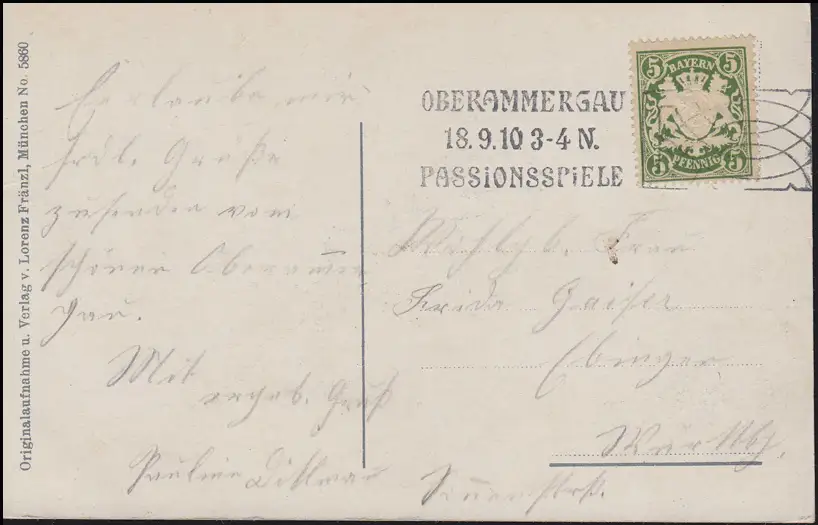 Originalaufnahme u. Verlag v. Lorenz Fränzl, München No. 5860
Erlaube mir
frdl. Grüße
zusenden vom
schönen Oberammer
gau.
Mit
ergeb. Gruß
Pauline
OBERAMMERGAU
18.9.10 3-4 N.
PASSIONSSPIELE
5 BAYERN 5
5 PFENNIG 5
Frau
Frida Gaiser
Ebingen
Württbg.